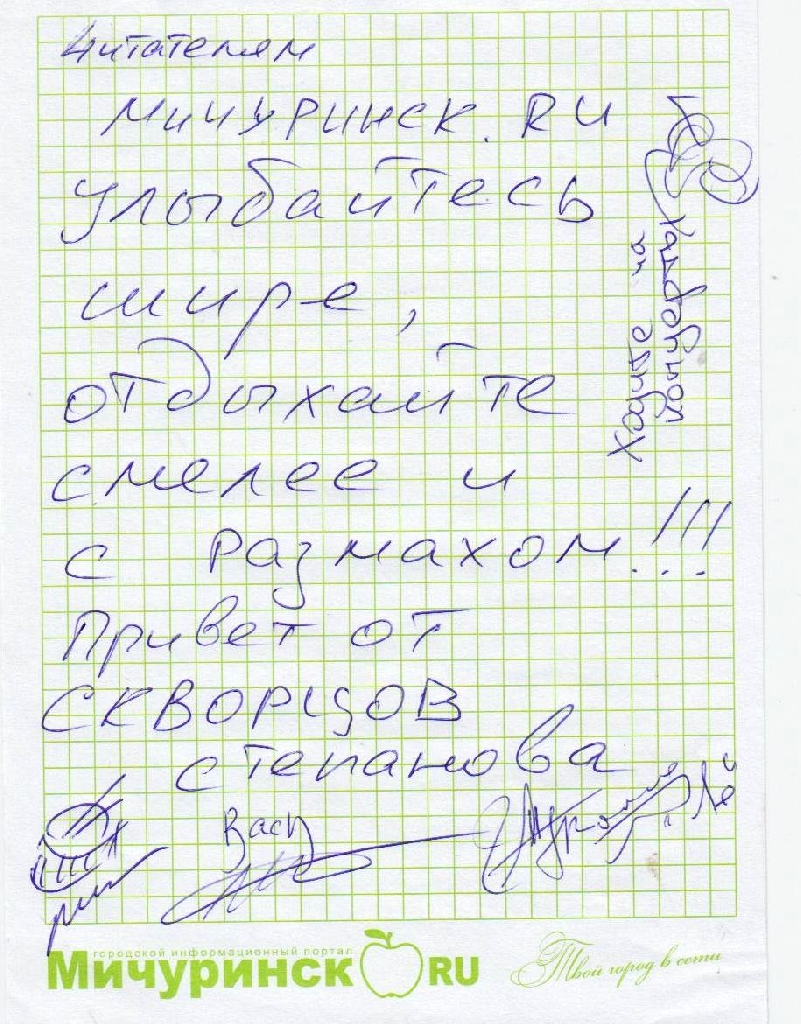 Читателям
Мичуринск.RU
улыбайтесь
шире,
отдыхайте
смелее и
с размахом!!!
Привет от
СКВОРЦОВ
степанова
Ходите на
концерты
Вася
городской информационный портал
Мичуринск RU
Твой город в сети